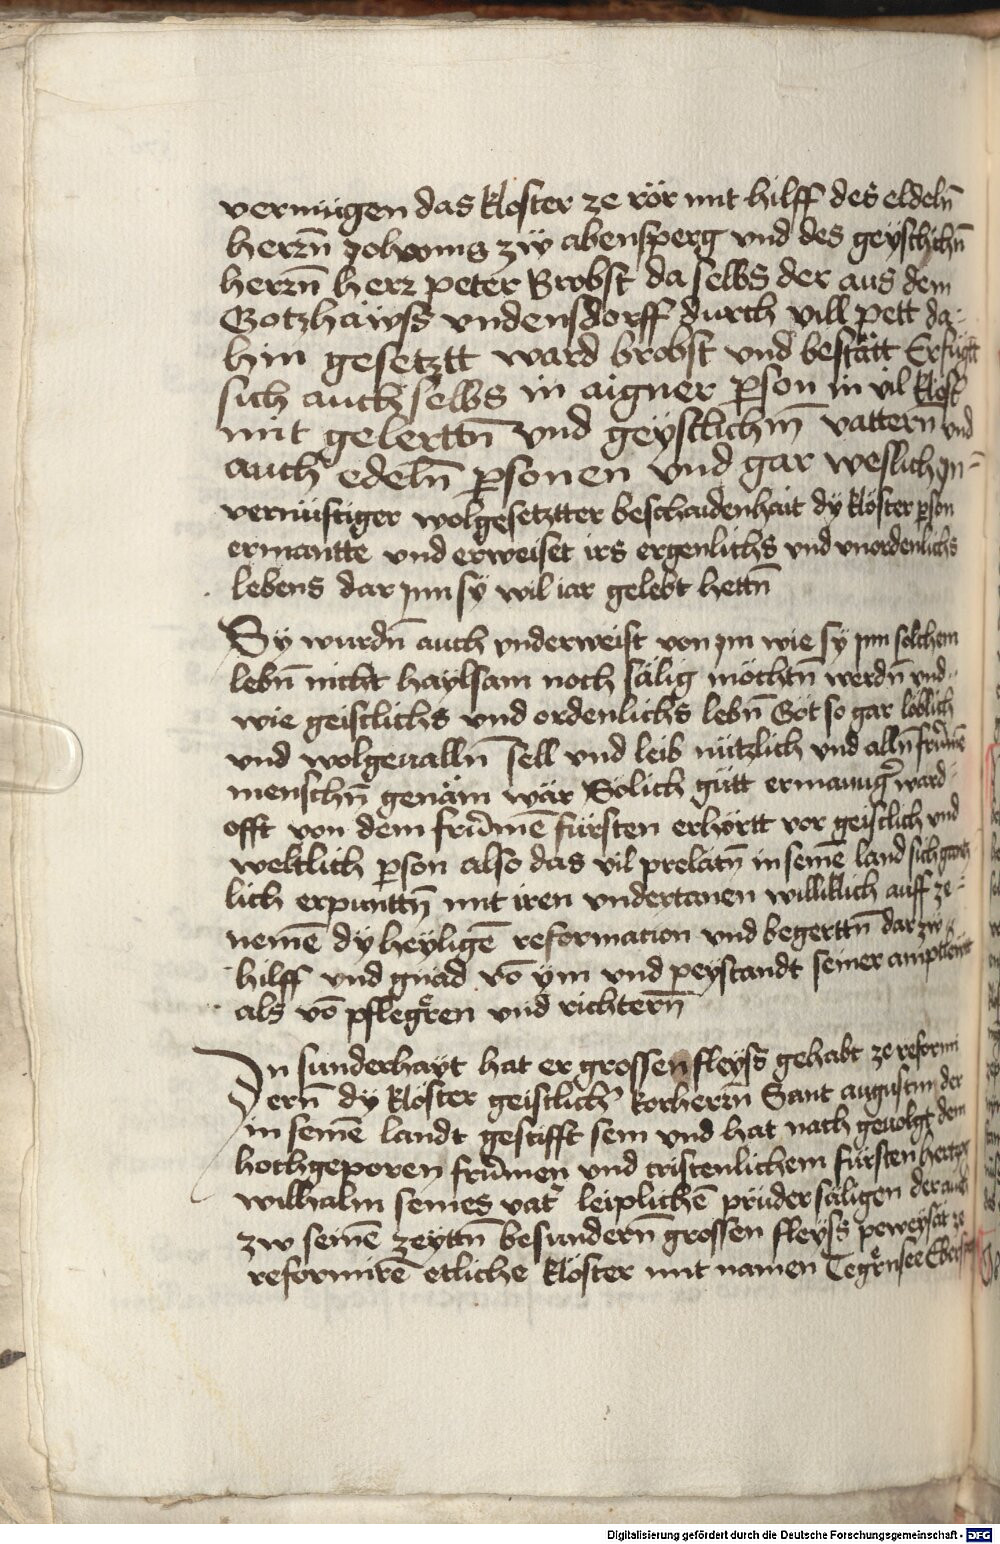 vermügen das kloster ze rör mit hilff des eldelñ
herrñ Johanns zw̎ abensperg vnd des geystlichñ
herrñ herr peter Brobst da selbs der aus dem
Gotzhaẅss vndensdorff durch vill pett da-
hin gesetztt ward brobst vnd bestätt Erfügtt
sich auch selbs in aigner ꝑson in vil klost̉
mit gelerttñ vnd geystlichm̄ vattern̄ vnd
auch edelñ ꝑsonen vnd gar weslich Jn-
vernüftiger wolgesetztter beschaidenhait dy klöster ꝑson
ermantte vnd erweiset irs ergenlichs vnd vnordenlichs
lebens dar Jnn sy vil iar gelebt hettñ
Sy wurdñ auch vnderweist von Jm wie sy Jnn solchem
lebñ nicht haylsam noch sälig möchtñ werdñ vnd
wie geistlichs vnd ordenlichs lebñ Göt so gar löblich
vnd wolgeuallñ sell vnd leib nützlich vnd allñ frũmē
menschñ genäm wär Sölich gütt ermanũg ward
offt von dem frũmē fürsten erhörtt vor geistlich vnd
weltlich ꝑson also das vil prelätñ in semē land sich gantz
lich erpunttñ mit iren vndertanen williklich auff ze-
nemē dy heyligē reformacion vnd begerttñ dar zw̎
hilff vnd gnad vō ym vnd peystandt seiner amptlewtt
als vō pflegẽren vnd richtern̄
Jn sunderhayt hat er grossen fleyss gehabt ze reformi
ern̄ dy klöster geistlich̉ korherrñ Sant augustin der
in semē landt gestifft sein vnd hat nach geuolgt dem
hochgeporen frũmen vnd cristenlichem fürsten hertzog
wilhalm seines vat̉ leiplichē prüder säligen der auch
zw semē zeyttñ besundern̄ grossen fleyss peweysat ze
reformirē etliche klöster mit namen Tegẽrnsee Ebersperg
Digitalisierung gefördert durch die Deutsche Forschungsgemeinschaft - DFG